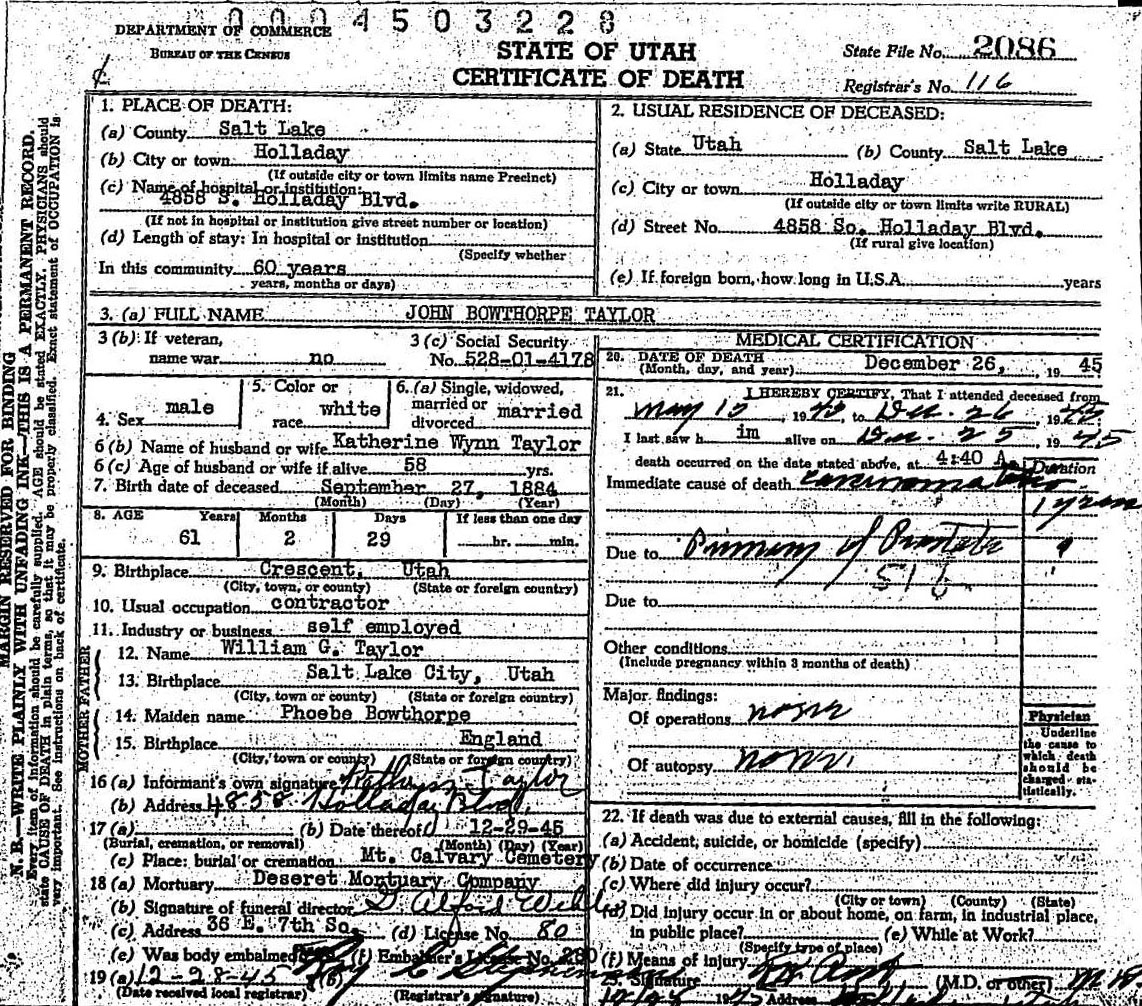 0004503228
DEPARTMENT OF COMMERCE
BUREAU OF THE CENSUS
STATE OF UTAH
CERTIFICATE OF DEATH
State File No. 2086
Registrar's No. 116
MARGIN RESERVED FOR BINDING
N. B.—WRITE PLAINLY WITH UNFADING INK—THIS IS A PERMANENT RECORD.
Every item of information should be carefully supplied. AGE should be stated EXACTLY. PHYSICIANS should
state CAUSE OF DEATH in plain terms, so that it may be properly classified. Exact statement of OCCUPATION is
very important. See instructions on back of certificate.
1. PLACE OF DEATH:
(a) County Salt Lake
(b) City or town Holladay
(If outside city or town limits name Precinct)
(c) Name of hospital or institution:
4858 S. Holladay Blvd.
(If not in hospital or institution give street number or location)
(d) Length of stay: In hospital or institution
(Specify whether
In this community 60 years
years, months or days)
2. USUAL RESIDENCE OF DECEASED:
(a) State Utah (b) County Salt Lake
(c) City or town Holladay
(If outside city or town limits write RURAL)
(d) Street No. 4858 So. Holladay Blvd.
(If rural give location)
(e) If foreign born, how long in U.S.A. years
3. (a) FULL NAME JOHN BOWTHORPE TAYLOR
3 (b) If veteran,
name war no
3 (c) Social Security
No. 528-01-4178
4. Sex male
5. Color or
race white
6. (a) Single, widowed,
married or
divorced married
6 (b) Name of husband or wife Katherine Wynn Taylor
6 (c) Age of husband or wife if alive 58 yrs.
7. Birth date of deceased September 27, 1884
(Month) (Day) (Year)
8. AGE Years Months Days If less than one day
61 2 29 hr. min.
9. Birthplace Crescent, Utah
(City, town, or county) (State or foreign country)
10. Usual occupation contractor
11. Industry or business self employed
FATHER
12. Name William G. Taylor
13. Birthplace Salt Lake City, Utah
(City, town or county) (State or foreign country)
MOTHER
14. Maiden name Phoebe Bowthorpe
15. Birthplace England
(City, town or county) (State or foreign country)
16 (a) Informant's own signature Taylor
(b) Address 4858 Holladay Blvd.
17 (a) (b) Date thereof 12-29-45
(Burial, cremation, or removal) (Month) (Day) (Year)
(c) Place: burial or cremation Mt. Calvary Cemetery
18 (a) Mortuary Deseret Mortuary Company
(b) Signature of funeral director
(c) Address 36 E. 7th So. (d) License No. 80
(e) Was body embalmed (f) Embalmer's License No.
19 (a) 12-28-45
(Date received local registrar) (Registrar's signature)
MEDICAL CERTIFICATION
20. DATE OF DEATH
(Month, day, and year) December 26, 1945
21. I HEREBY CERTIFY, That I attended deceased from
May 15 19 to Dec. 26 1945
I last saw h im alive on Dec. 25 1945
death occurred on the date stated above, at 4:40 A.
Duration
Immediate cause of death
Due to Primary of Prostate
Due to
Other conditions
(Include pregnancy within 3 months of death)
Major findings:
Of operations none
Of autopsy none
Physician
Underline
the cause to
which death
should be
charged sta-
tistically.
22. If death was due to external causes, fill in the following:
(a) Accident, suicide, or homicide (specify)
(b) Date of occurrence
(c) Where did injury occur?
(City or town) (County) (State)
(d) Did injury occur in or about home, on farm, in industrial place,
in public place? (e) While at Work?
(Specify type of place)
(f) Means of injury
23. Signature (M.D. or other)
Address